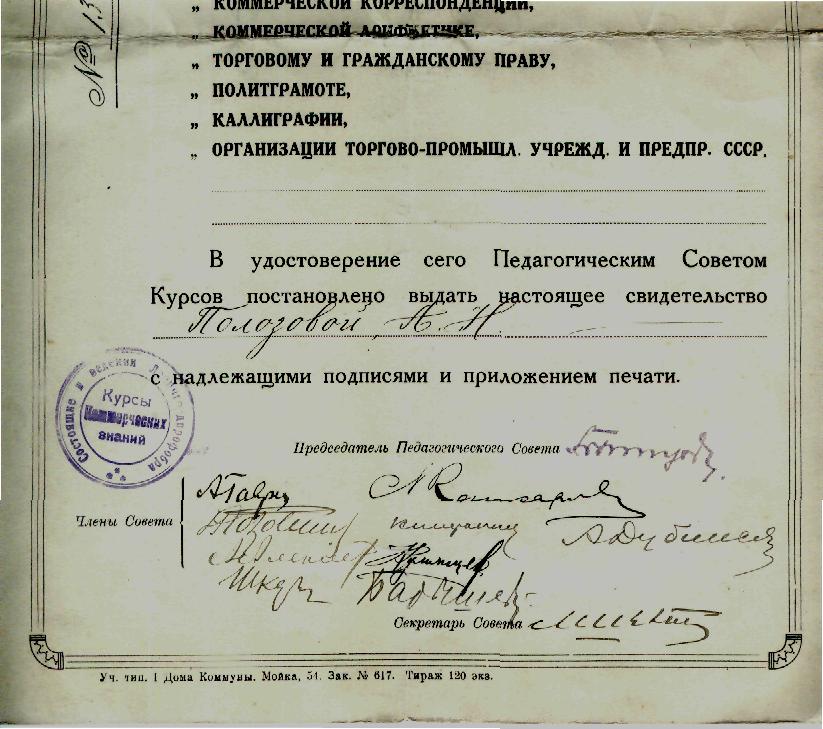 „ КОММЕРЧЕСКОЙ КОРРЕСПОНДЕНЦИИ,
„ КОММЕРЧЕСКОЙ АРИФМЕТИКЕ,
„ ТОРГОВОМУ И ГРАЖДАНСКОМУ ПРАВУ,
„ ПОЛИТГРАМОТЕ,
„ КАЛЛИГРАФИИ,
„ ОРГАНИЗАЦИИ ТОРГОВО-ПРОМЫШЛ. УЧРЕЖД. И ПРЕДПР. СССР.
В удостоверение сего Педагогическим Советом
Курсов постановлено выдать настоящее свидетельство
Полозовой А. Н.
с надлежащими подписями и приложением печати.
Состоящие в ведении
Курсы
Коммерческих
знаний
Председатель Педагогического Совета
Члены Совета
А Дубинский
Секретарь Совета
Уч. тип. I Дома Коммуны. Мойка, 54. Зак. № 617. Тираж 120 экз.
№ 13